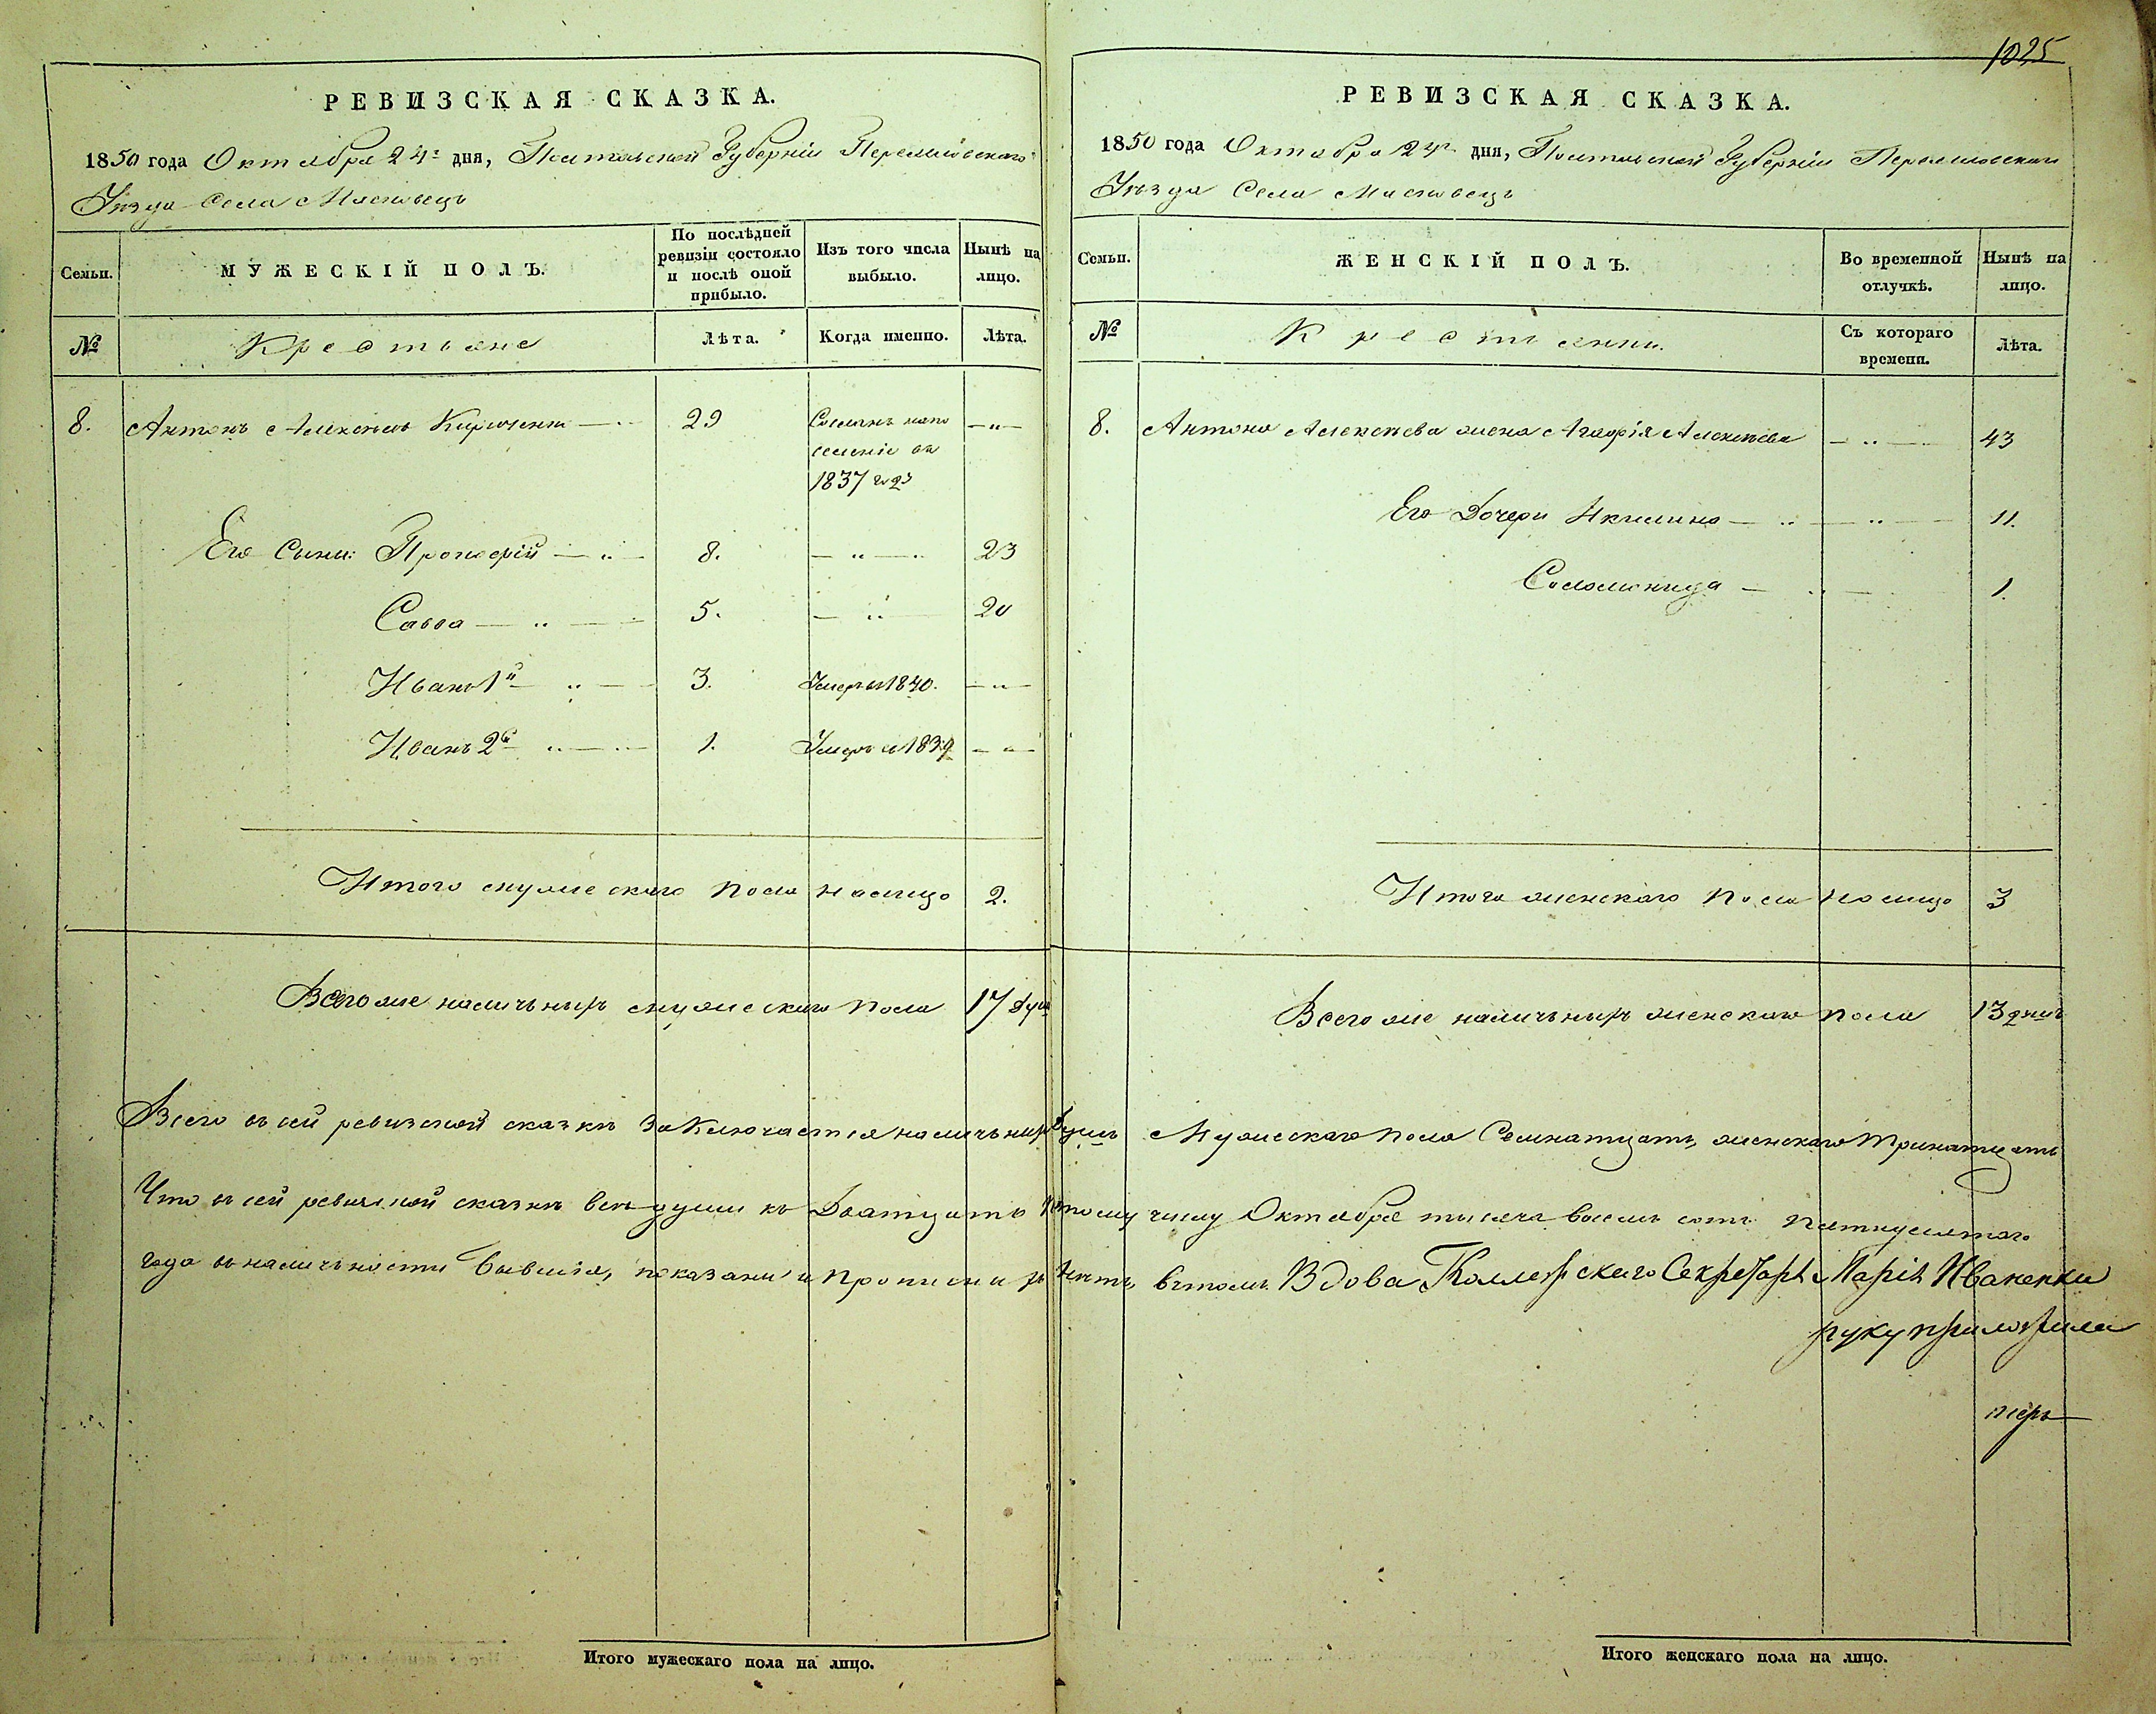 1025
РЕВИЗСКАЯ СКАЗКА.
1850 года Октября 24го дня, Полтавской Губерніи Переяславскаго
Уѣзда Села Масковецъ
Семьи.
МУЖЕСКІЙ ПОЛЪ.
По послѣдней ревизіи состояло и послѣ оной прибыло.
Изъ того числа выбыло.
Нынѣ на лицо.
№
Крестьяне
Лѣта.
Когда именно.
Лѣта.
8. Антонъ Алексѣевъ 29 Сосланъ на по „
селеніе въ
1837 году
Его Сыны: Прокофій „ 8. „ 23
Савва „ 5. „ 20
Иванъ 1й „ 3. Умеръ въ 1840. „
Иванъ 2й „ 1. Умеръ въ 1839 „
Итого мужескаго пола на лицо 2.
Всего же наличныхъ мужескаго пола 17 душъ
РЕВИЗСКАЯ СКАЗКА.
1850 года Октября 24го дня, Полтавской Губерніи Переяславскаго
Уѣзда Села Масковецъ
Семьи.
ЖЕНСКІЙ ПОЛЪ.
Во временной отлучкѣ.
Нынѣ на лицо.
№
Крестьянки.
Съ котораго времени.
Лѣта.
8. Антона Алексѣева жена Агафія Алексѣева „ 43
Его Дочери Акилина „ „ 11.
Соломонида „ 1.
Итого женскаго пола на лицо 3
Всего же наличныхъ женскаго пола 13 душъ
Всего въ сей ревизской сказкѣ заключается наличныхъ душъ Мужескаго пола Семнатцать, женскаго Тринатцать
Что въ сей ревизской сказкѣ всѣ души къ Дватцать четвертому числу Октября тысяча восемь сотъ пятидесятаго
года въ наличности бывшія, показаны и прописныхъ нѣтъ, въ томъ Вдова Коллежскаго Секретаря Марія Иваненкова
руку приложила
Итого мужескаго пола на лицо.
Итого женскаго пола на лицо.